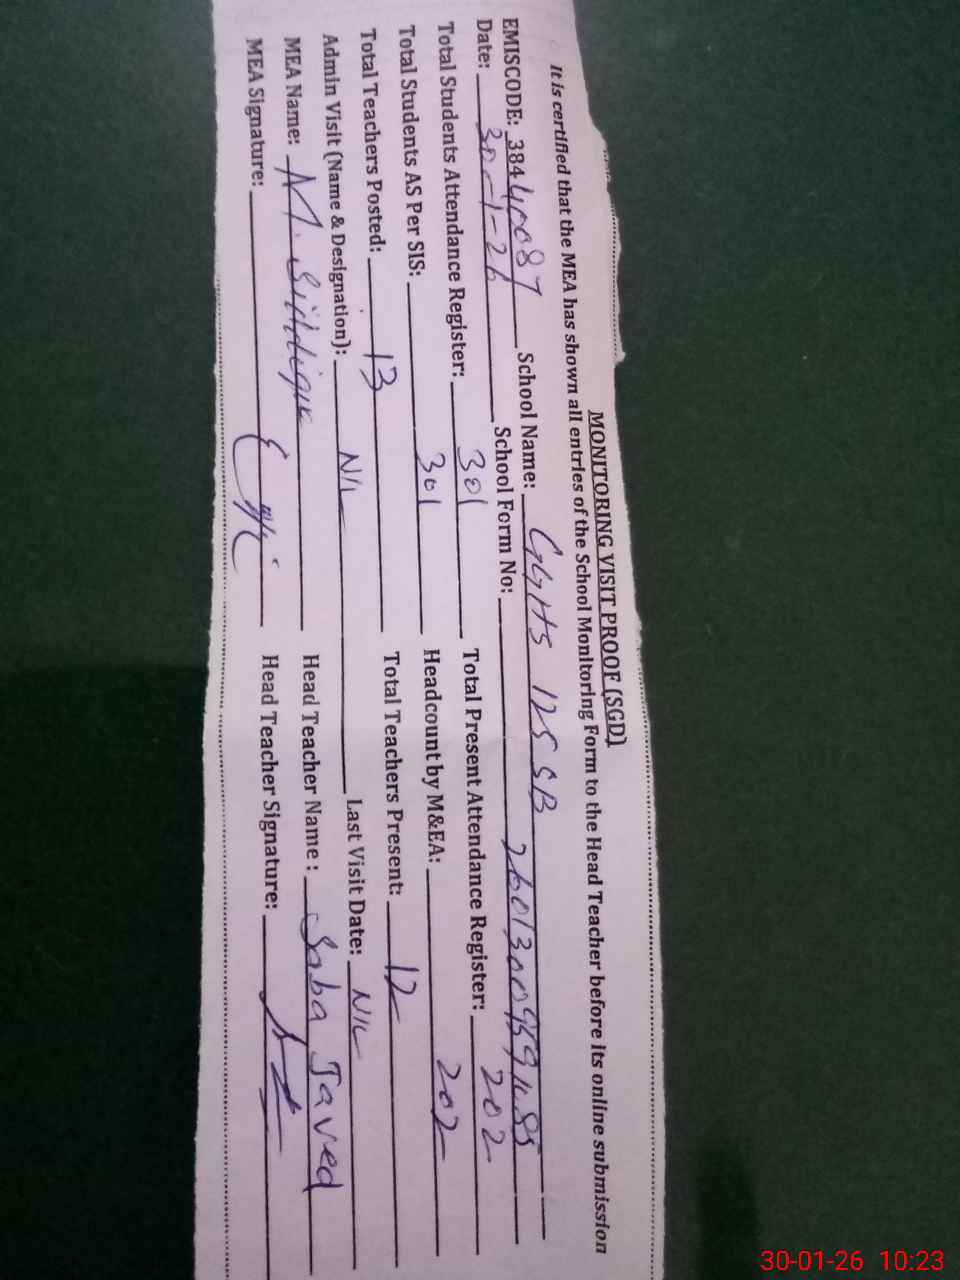 MONITORING VISIT PROOF (SGD)
It is certified that the MEA has shown all entries of the School Monitoring Form to the Head Teacher before its online submission
EMISCODE: 38440087 School Name: GGHS 125 SB
Date: 30-1-26 School Form No:
Total Students Attendance Register: 301 Total Present Attendance Register: 202
Total Students AS Per SIS: 301 Headcount by M&EA: 202
Total Teachers Posted: 13 Total Teachers Present: 12
Admin Visit (Name & Designation): NIL Last Visit Date: NIL
MEA Name: M. Siddique Head Teacher Name : Saba Javed
MEA Signature: Head Teacher Signature:
30-01-26 10:23